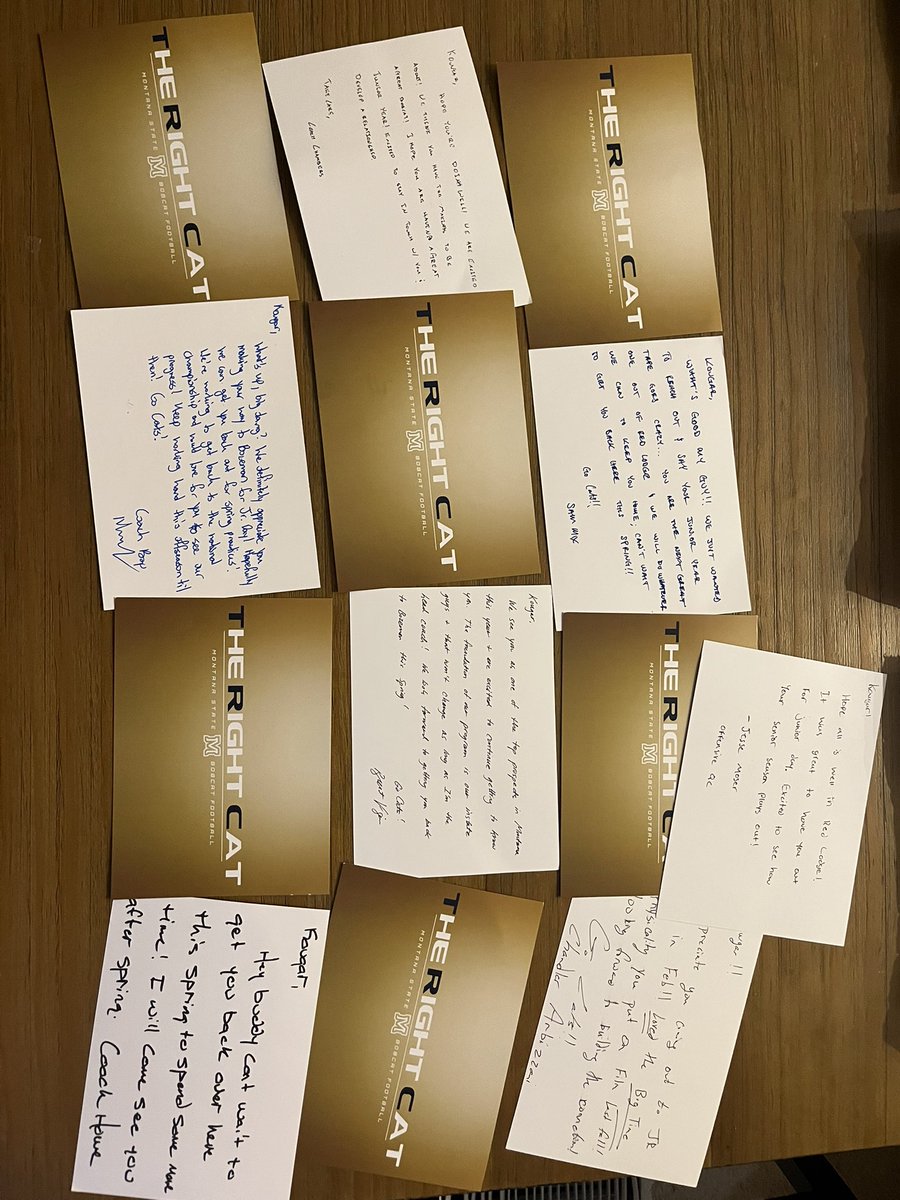 THE RIGHT CAT
MONTANA STATE M BOBCAT FOOTBALL
KOUGAR,
HOPE YOU'RE DOING WELL! WE ARE EXCITED
ABOUT! WE THINK YOU HAVE THE TO BE
A GREAT BOBCAT! I HOPE YOU ARE HAVING A GREAT
JUNIOR YEAR! EXCITED TO STAY IN TOUCH W/ YOU &
DEVELOP A RELATIONSHIP
TAKE CARE,
COACH CHAMBERS
THE RIGHT CAT
MONTANA STATE M BOBCAT FOOTBALL
Kougar,
What's up, big dawg? We definitely appreciate you
making your way to Bozeman for Jr. Day! Hopefully
we can get you back out for spring practice.
We're working to get back to the national
championship and would love for you to see our
progress! Keep working hard this offseason til
then! Go Cats!
Coach
THE RIGHT CAT
MONTANA STATE M BOBCAT FOOTBALL
KOUGAR,
WHAT'S GOOD MY GUY!! WE JUST WANTED
TO REACH OUT & SAY YOUR JUNIOR YEAR
TAPE GOES CRAZY... YOU ARE THE NEXT GREAT
ONE OUT OF RED LODGE & WE WILL DO WHATEVER
WE CAN TO KEEP YOU HOME, CAN'T WAIT
TO GET YOU BACK HERE THIS SPRING!!
GO CATS!!
SAM MIX
THE RIGHT CAT
MONTANA STATE M BOBCAT FOOTBALL
Kougar,
We see you as one of the top prospects in Montana
this year & are excited to continue getting to know
you. The foundation of our program is our instate
guys & that won't change as long as I'm the
head coach! We look forward to getting you back
to Bozeman this Spring!
Go Cats!
Brent Vigen
THE RIGHT CAT
MONTANA STATE BOBCAT FOOTBALL
Kougar!
Hope all is well in Red Lodge!
It was great to have you out
for junior day. Excited to see how
your senior season plays out!
- Jesse Moser
offensive QC
Kougar,
Hey buddy can't wait to
get you back over here
this spring to spend some more
time! I will come see you
after spring. Coach Howe
THE RIGHT CAT
MONTANA STATE M BOBCAT FOOTBALL
ugar!!!
preciate you coming out to JR
in Feb!! Loved the Big Time
hysicality you put on Film Last fall!
ooking forward to building the
Go Cats!!
Chandler